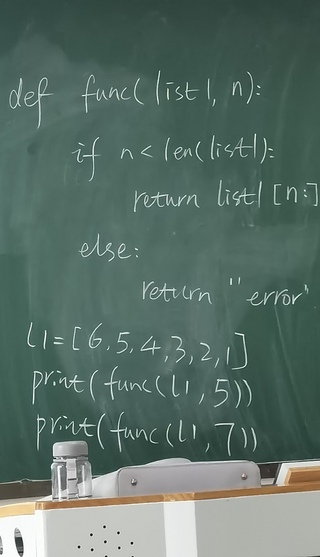 def func(list1, n):
if n < len(list1):
return list1[n:]
else:
return "error"
l1=[6,5,4,3,2,1]
print(func(l1,5))
print(func(l1,7))